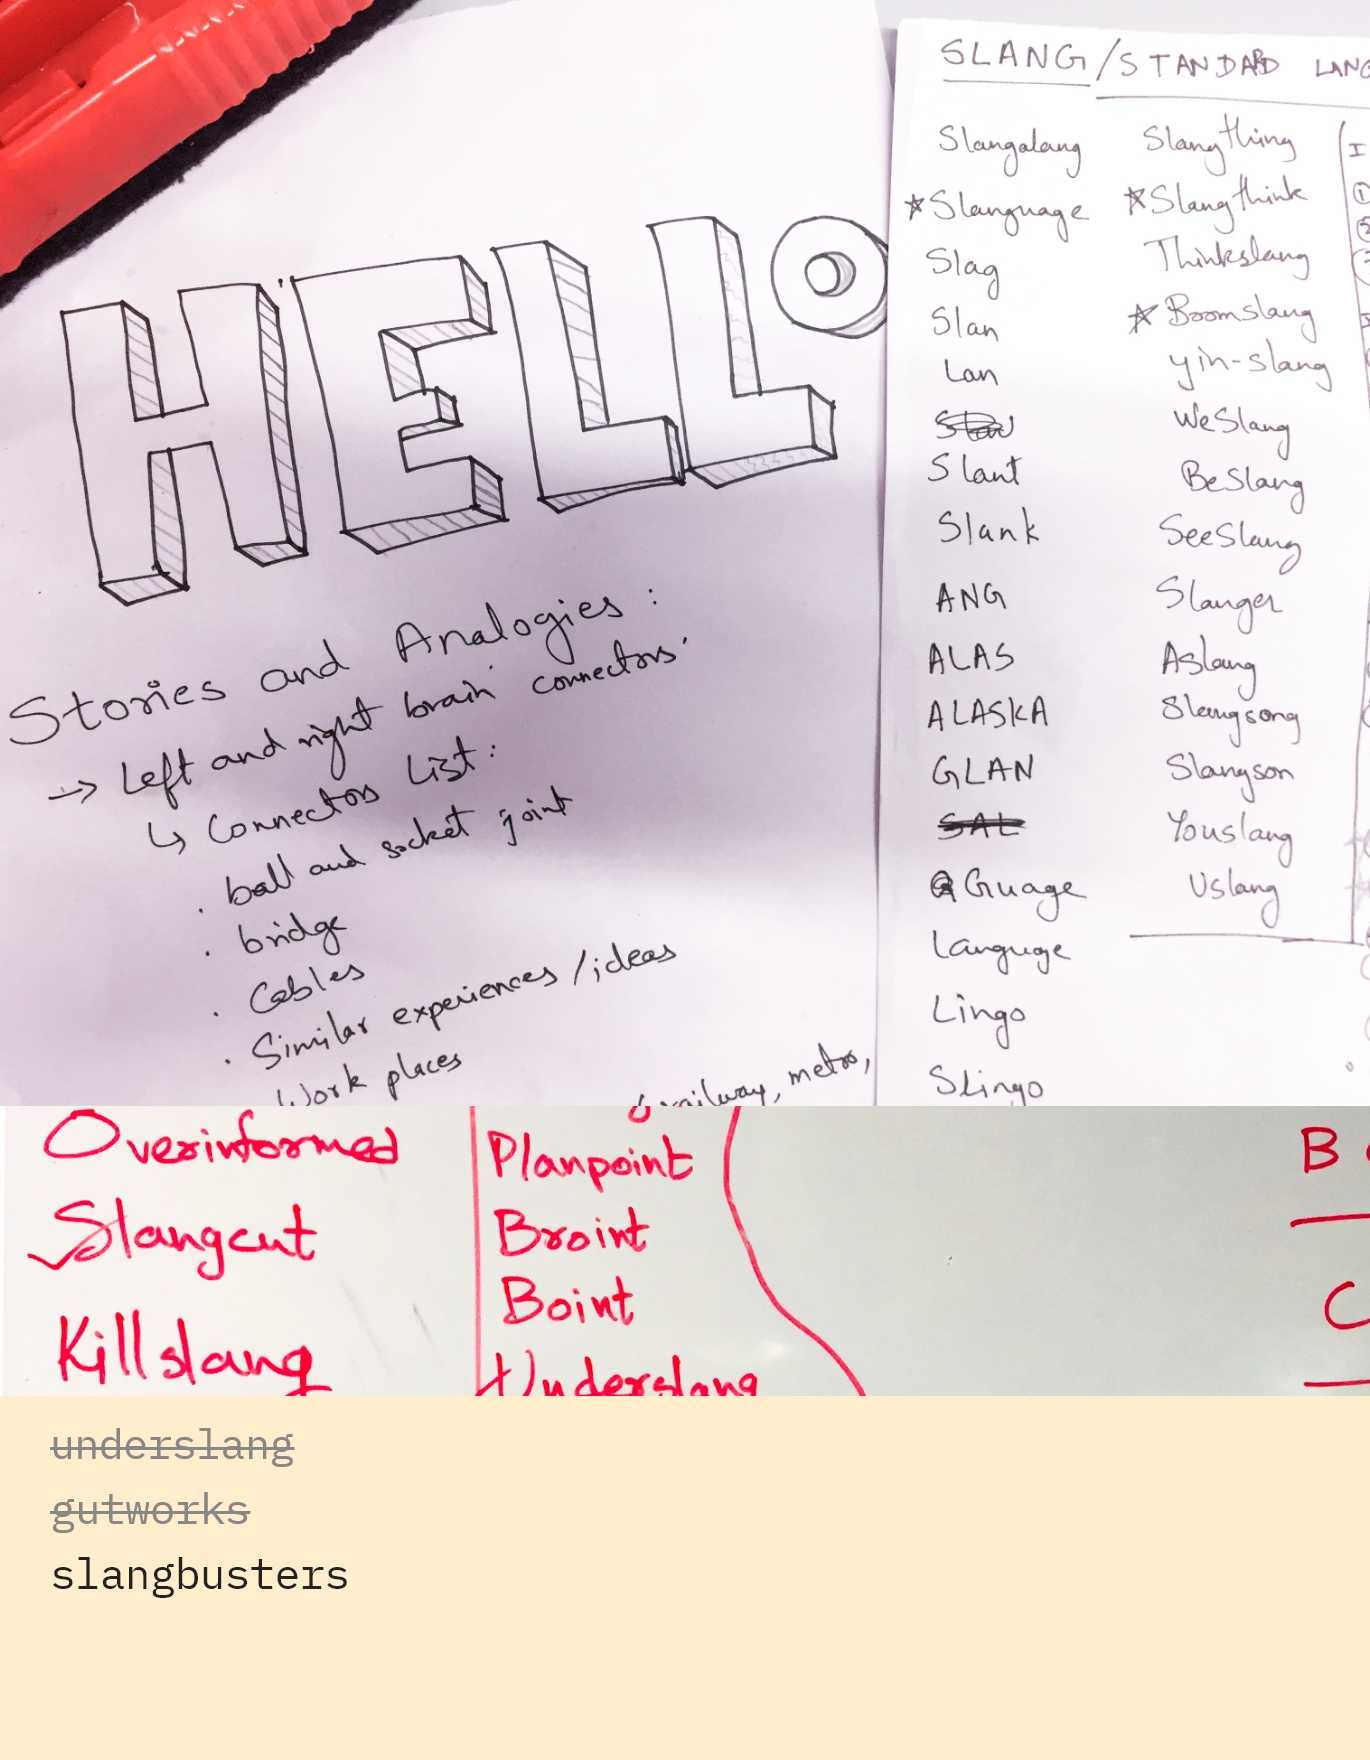 HELLO
Stories and Analogies :
→ Left and right brain connectors.
↳ Connectors List :
. ball and socket joint
. bridge
. Cables
. Similar experiences / ideas
Work places
railway, metro,
SLANG / STANDARD LANG
Slangalang
☆ Slanguage
Slag
Slan
Lan
Slant
Slank
ANG
ALAS
ALASKA
GLAN
SAL
Guage
Language
Lingo
Slingo
Slangthing
☆ Slangthink
Thinkslang
☆ Boomslang
yin-slang
WeSlang
BeSlang
SeeSlang
Slanger
Aslang
Slangsong
Slangson
Youslang
Uslang
Overinformed
Slangcut
Killslang
Planpoint
Broint
Boint
Underslang
B
C
underslang
gutworks
slangbusters